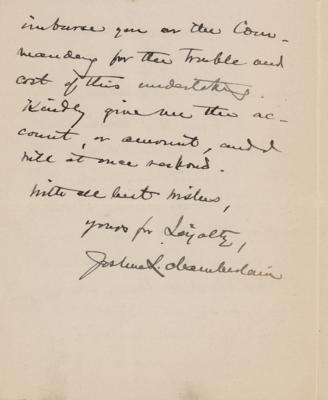 imburse you or the Com-
mandery for the trouble and
cost of this undertaking.
Kindly give me the ac-
count, or amount, and I
will at once respond.
With all best wishes,
yours for Loyalty,
Joshua L. Chamberlain